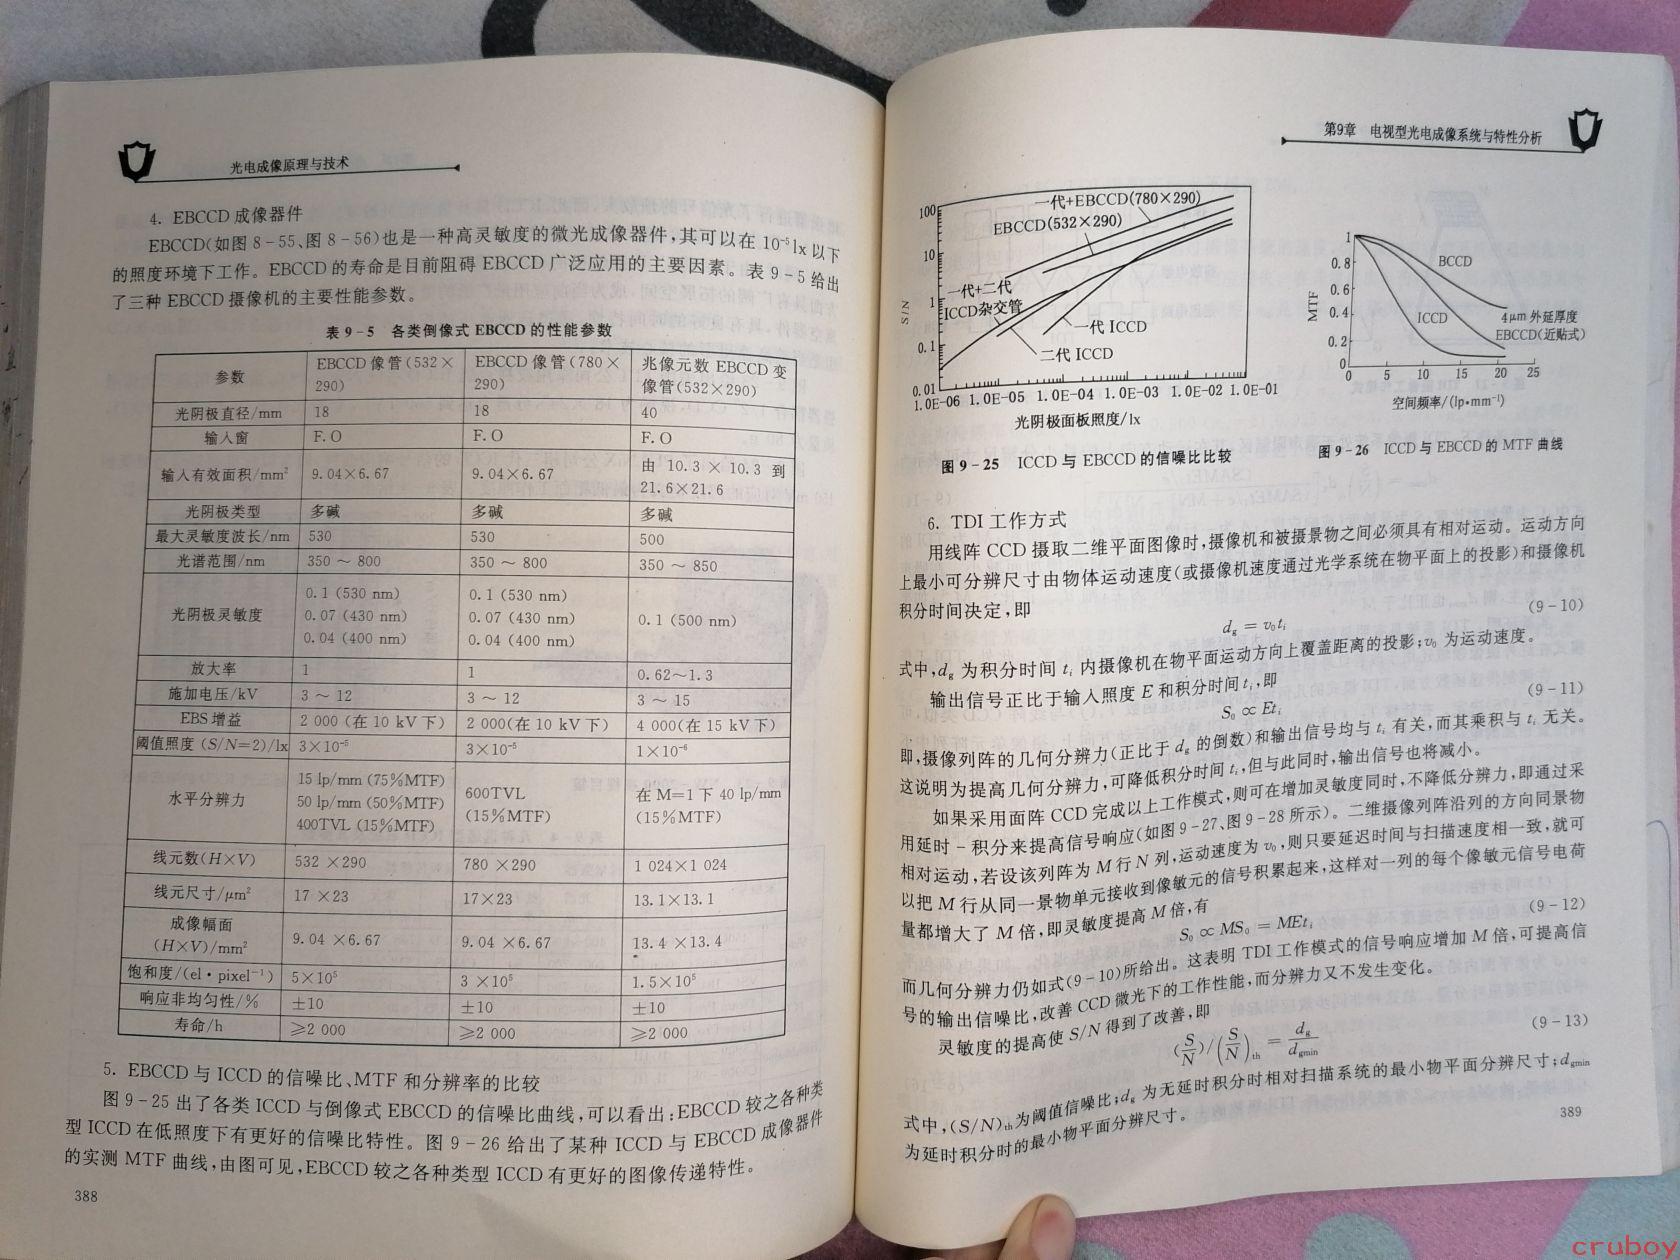 光电成像原理与技术
4. EBCCD 成像器件
EBCCD(如图 8-55、图 8-56)也是一种高灵敏度的微光成像器件,其可以在 10⁻⁵ lx 以下
的照度环境下工作。EBCCD 的寿命是目前阻碍 EBCCD 广泛应用的主要因素。表 9-5 给出
了三种 EBCCD 摄像机的主要性能参数。
表 9-5 各类倒像式 EBCCD 的性能参数
参数 EBCCD 像管(532×290) EBCCD 像管(780×290) 兆像元数 EBCCD 变像管(532×290)
光阴极直径/mm 18 18 40
输入窗 F.O F.O F.O
输入有效面积/mm² 9.04×6.67 9.04×6.67 由 10.3×10.3 到 21.6×21.6
光阴极类型 多碱 多碱 多碱
最大灵敏度波长/nm 530 530 500
光谱范围/nm 350~800 350~800 350~850
光阴极灵敏度 0.1 (530 nm) 0.07 (430 nm) 0.04 (400 nm) 0.1 (530 nm) 0.07 (430 nm) 0.04 (400 nm) 0.1 (500 nm)
放大率 1 1 0.62~1.3
施加电压/kV 3~12 3~12 3~15
EBS 增益 2 000 (在 10 kV 下) 2 000(在 10 kV 下) 4 000(在 15 kV 下)
阈值照度 (S/N=2)/lx 3×10⁻⁵ 3×10⁻⁵ 1×10⁻⁶
水平分辨力 15 lp/mm (75%MTF) 50 lp/mm (50%MTF) 400TVL (15%MTF) 600TVL (15%MTF) 在 M=1 下 40 lp/mm (15%MTF)
线元数(H×V) 532 ×290 780 ×290 1 024×1 024
线元尺寸/μm² 17 ×23 17×23 13.1×13.1
成像幅面 (H×V)/mm² 9.04 ×6.67 9.04 ×6.67 13.4 ×13.4
饱和度/(el·pixel⁻¹) 5×10⁵ 3 ×10⁵ 1.5×10⁵
响应非均匀性/% ±10 ±10 ±10
寿命/h ≥2 000 ≥2 000 ≥2 000
5. EBCCD 与 ICCD 的信噪比、MTF 和分辨率的比较
图 9-25 出了各类 ICCD 与倒像式 EBCCD 的信噪比曲线,可以看出:EBCCD 较之各种类
型 ICCD 在低照度下有更好的信噪比特性。图 9-26 给出了某种 ICCD 与 EBCCD 成像器件
的实测 MTF 曲线,由图可见,EBCCD 较之各种类型 ICCD 有更好的图像传递特性。
388
第9章 电视型光电成像系统与特性分析
100
10
1
0.1
0.01
S/N
一代+EBCCD(780×290)
EBCCD(532×290)
一代+二代
ICCD杂交管
一代 ICCD
二代 ICCD
1.0E-06 1.0E-05 1.0E-04 1.0E-03 1.0E-02 1.0E-01
光阴极面板照度/lx
图 9-25 ICCD 与 EBCCD 的信噪比比较
1
0.8
0.6
0.4
0.2
0
MTF
BCCD
ICCD
4μm 外延厚度
EBCCD(近贴式)
0 5 10 15 20 25
空间频率/(lp·mm⁻¹)
图 9-26 ICCD 与 EBCCD 的 MTF 曲线
6. TDI 工作方式
用线阵 CCD 摄取二维平面图像时,摄像机和被摄景物之间必须具有相对运动。运动方向
上最小可分辨尺寸由物体运动速度(或摄像机速度通过光学系统在物平面上的投影)和摄像机
积分时间决定,即
d_g = v₀t_i (9-10)
式中,d_g 为积分时间 t_i 内摄像机在物平面运动方向上覆盖距离的投影;v₀ 为运动速度。
输出信号正比于输入照度 E 和积分时间 t_i,即
S₀ ∝ Et_i (9-11)
即,摄像列阵的几何分辨力(正比于 d_g 的倒数)和输出信号均与 t_i 有关,而其乘积与 t_i 无关。
这说明为提高几何分辨力,可降低积分时间 t_i,但与此同时,输出信号也将减小。
如果采用面阵 CCD 完成以上工作模式,则可在增加灵敏度同时,不降低分辨力,即通过采
用延时-积分来提高信号响应(如图 9-27、图 9-28 所示)。二维摄像列阵沿列的方向同景物
相对运动,若设该列阵为 M 行 N 列,运动速度为 v₀,则只要延迟时间与扫描速度相一致,就可
以把 M 行从同一景物单元接收到像敏元的信号积累起来,这样对一列的每个像敏元信号电荷
量都增大了 M 倍,即灵敏度提高 M 倍,有
S₀ ∝ MS₀ = MEt_i (9-12)
而几何分辨力仍如式(9-10)所给出。这表明 TDI 工作模式的信号响应增加 M 倍,可提高信
号的输出信噪比,改善 CCD 微光下的工作性能,而分辨力又不发生变化。
灵敏度的提高使 S/N 得到了改善,即
(S/N)/(S/N)_th = d_g/d_gmin (9-13)
式中,(S/N)_th 为阈值信噪比;d_g 为无延时积分时相对扫描系统的最小物平面分辨尺寸;d_gmin
为延时积分时的最小物平面分辨尺寸。
389
cruboy